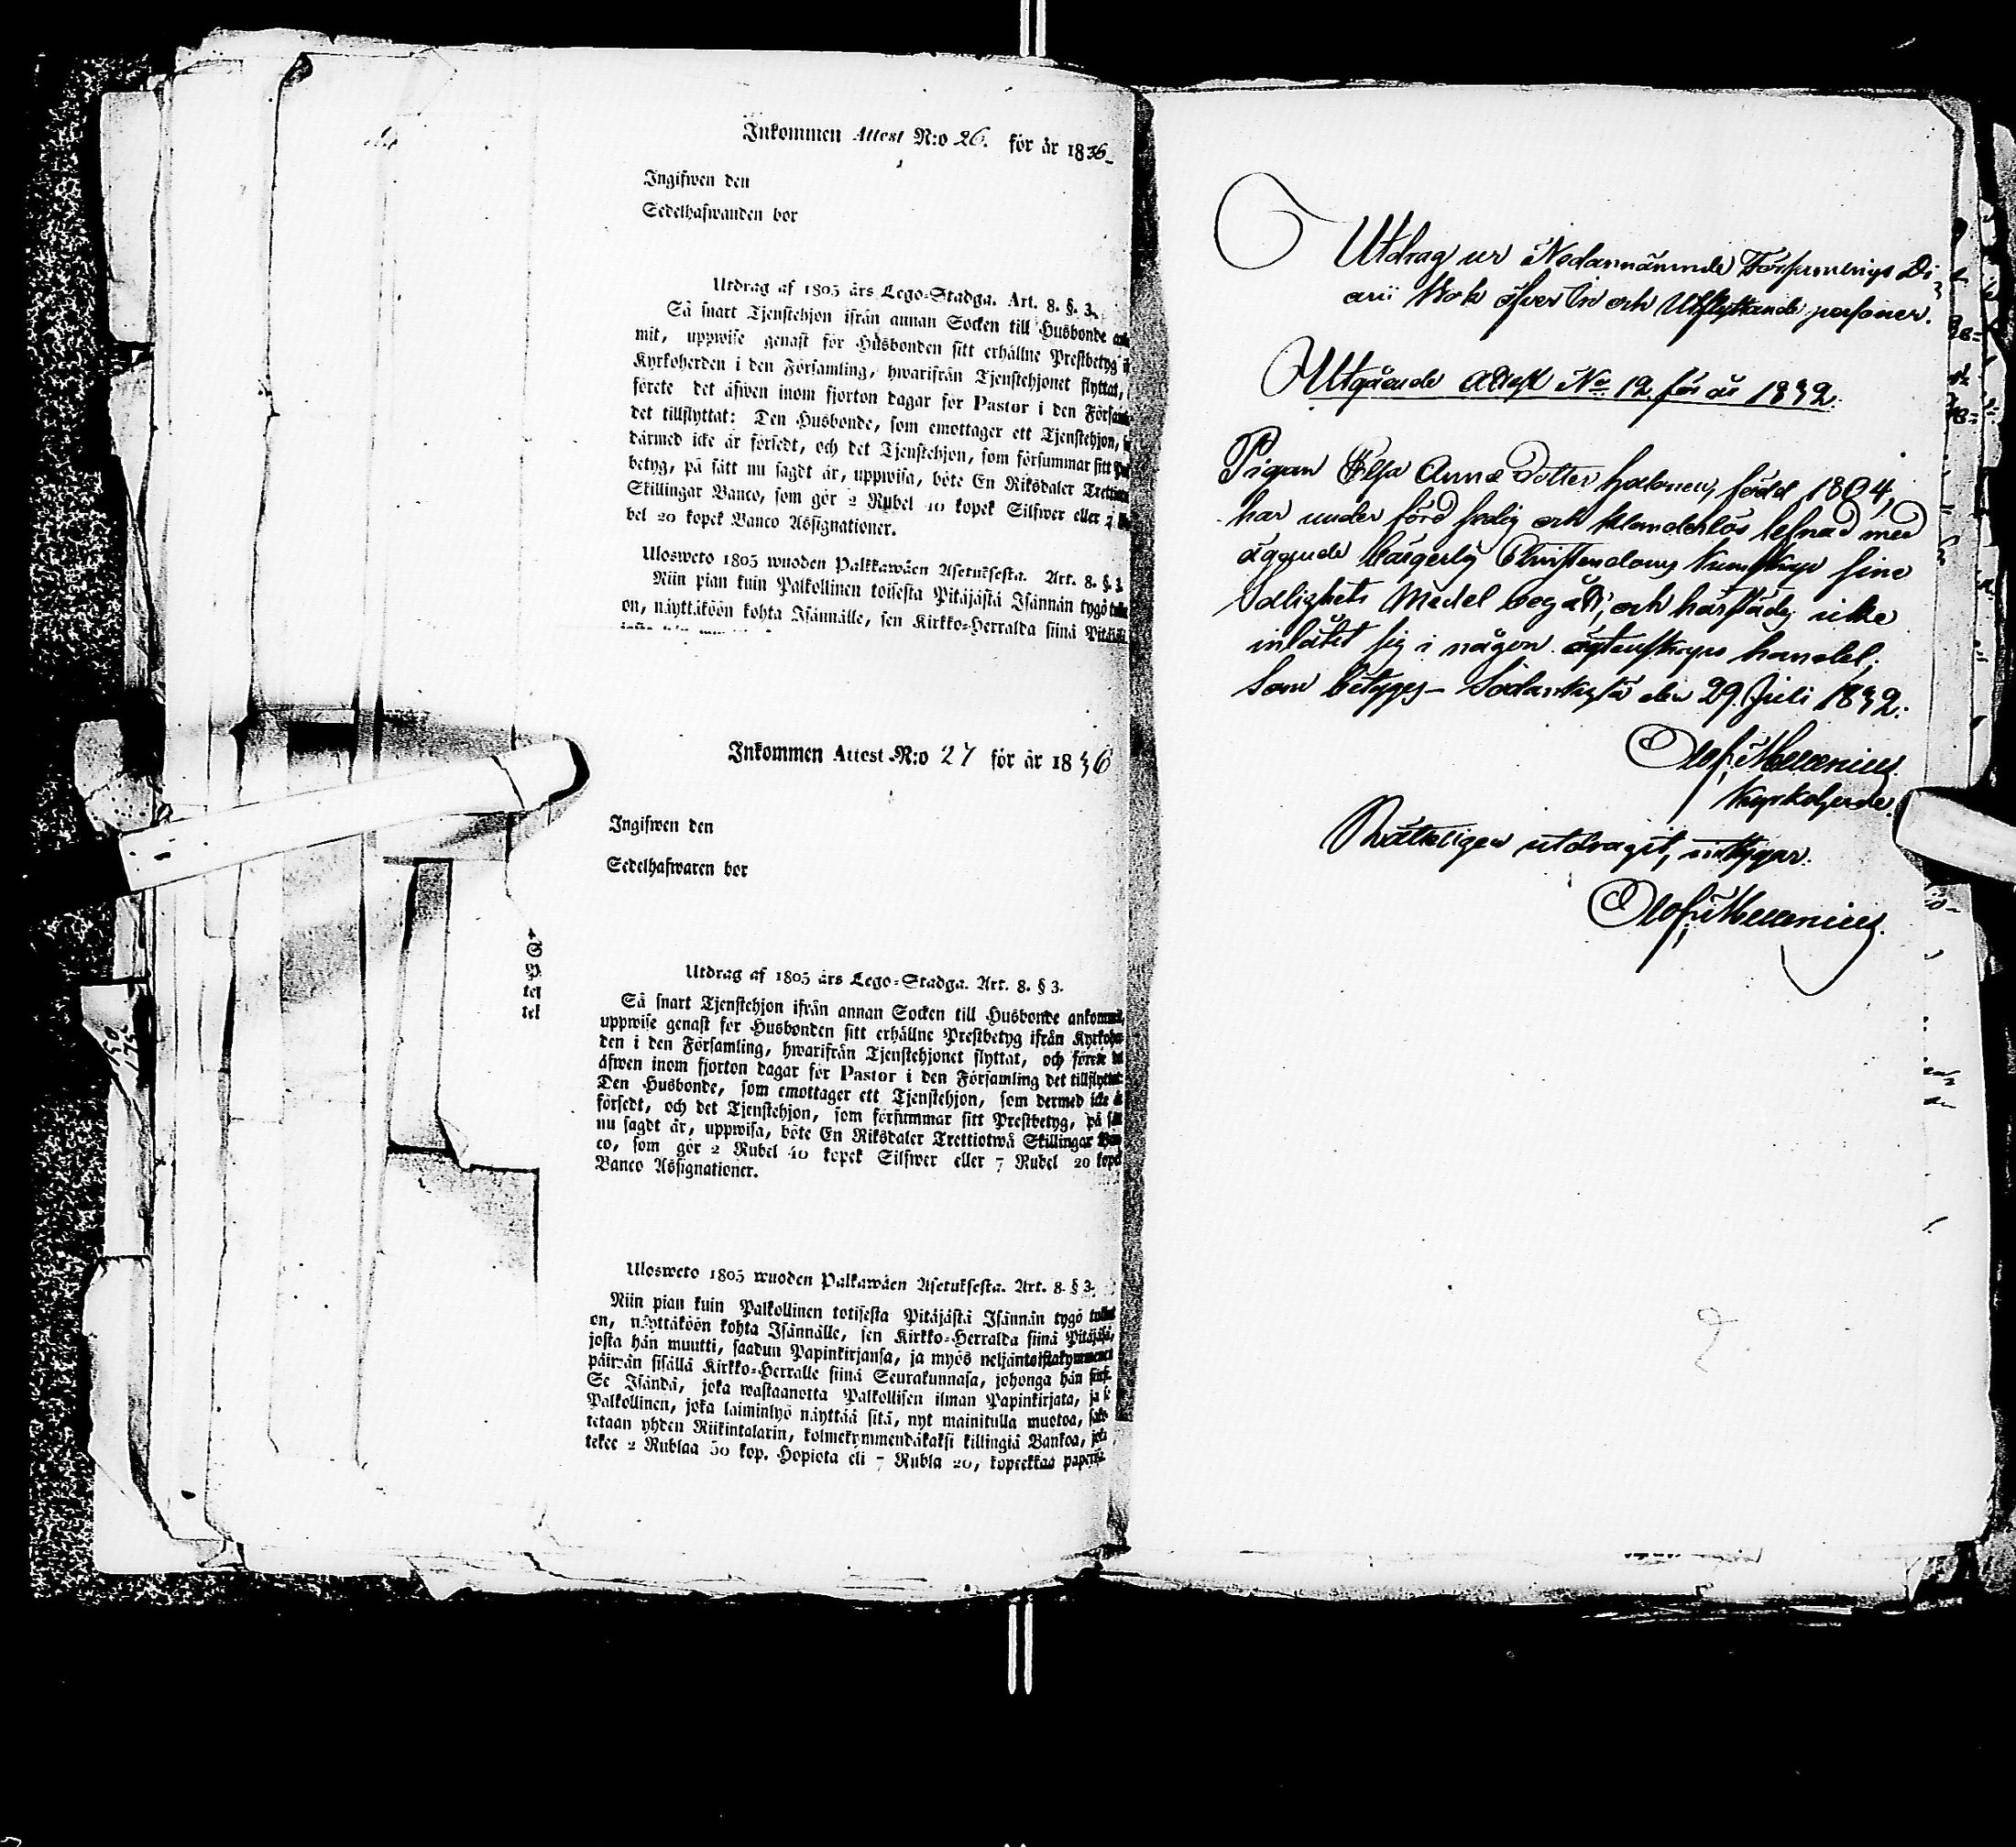 Inkommen Attest N:o 26. för år 1836
Ingifwen den
Sedelhafwanden bor
Utdrag af 1805 års Lego-Stadga. Art. 8. §. 3.
Så snart Tjenstehjon ifrån annan Socken till Husbonde
mit, uppwise genast för Husbonden sitt erhållne Prestbetyg
Kyrkoherden i den Församling, hwarifrån Tjenstehjonet flyttat,
förete det äfwen inom fjorton dagar för Pastor i den
det tillflyttat: Den Husbonde, som emottager ett Tjenstehjon,
därmed icke är försedt, och det Tjenstehjon, som försummar sitt
betyg, på sätt nu sagdt är, uppwisa, böte En Riksdaler
Skillingar Banco, som gör 2 Rubel 40 kopek Silfwer eller 7
bel 20 kopek Banco Assignationer.
Ulosweto 1805 wuoden Palkkawäen Asetuksesta. Art. 8. §. 3
Niin pian kuin Palkollinen toisesta Pitäjästä Isännän tygö
on, näyttäköön kohta Isännälle, sen Kirkko-Herralda siinä
Inkommen Attest N:o 27 för år 1836
Ingifwen den
Sedelhafwaren bor
S
P
tet
tek
150
175
Utdrag af 1805 års Lego-Stadga. Art. 8. § 3.
Så snart Tjenstehjon ifrån annan Socken till Husbonde ankommit,
uppwise genast för Husbonden sitt erhållne Prestbetyg ifrån
den i den Församling, hwarifrån Tjenstehjonet flyttat, och förete
äfwen inom fjorton dagar för Pastor i den Församling det tillflyttat:
Den Husbonde, som emottager ett Tjenstehjon, som dermed icke
försedt, och det Tjenstehjon, som försummar sitt Prestbetyg, på
nu sagdt är, uppwisa, böte En Riksdaler Trettiotwå Skillingar
co, som gör 2 Rubel 40 kopek Silfwer eller 7 Rubel 20 kopek
Banco Assignationer.
Ulosweto 1805 wuoden Palkawäen Asetuksesta. Art. 8. § 3.
Niin pian kuin Palkollinen totisesta Pitäjästä Isännän tygö tullut
on, näyttäköön kohta Isännälle, sen Kirkko-Herralda siinä Pitäjäsä,
josta hän muutti, saadun Papinkirjansa, ja myös neljäntoistakymmenet
päiwän sisällä Kirkko-Herralle siinä Seurakunnasa, johonga hän
Se Isändä, joka wastaanotta Palkollisen ilman Papinkirjata, ja se
Palkollinen, joka laiminlyö näyttää sitä, nyt mainitulla muotoa,
tetaan yhden Riikintalarin, kolmekymmendäkaksi killingiä Bankoa,
tekee 2 Rublaa 50 kop. Hopiota eli 7 Rubla 20, kopeekkaa
Utdrag ur Nedannämnde Församlings Di
arii Bok öfver In och Utflyttande personer.
Utgående Attest No. 12 för år 1832.
Pigan Elsa Anna Dotter född 1804,
har under förd fredig och klanderlös lefnad med
ägande bärgerlig Christendoms kunskap sine
Salighets Medel begått, och härstädes icke
inlåtit sig i någon ägtenskaps handel;
Som betyges Sodankylä den 29. Juli 1832.
Olof Mellenius
Kyrkoherde
Rätteligen utdragit, intygar.
Olof Mellenius